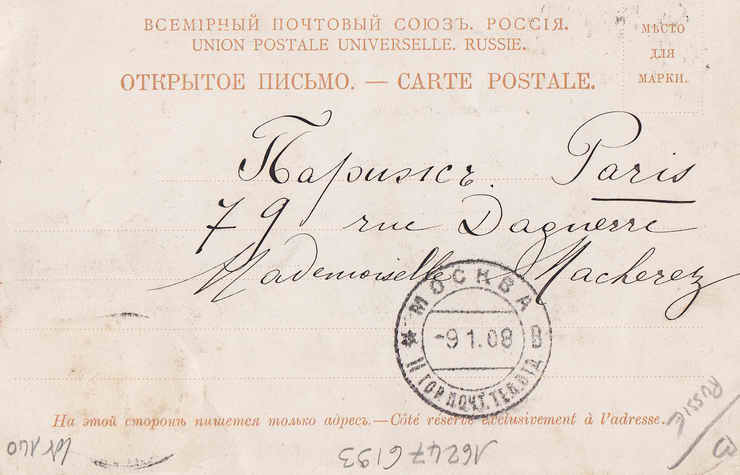 ВСЕМІРНЫЙ ПОЧТОВЫЙ СОЮЗЪ. РОССІЯ.
UNION POSTALE UNIVERSELLE. RUSSIE.
ОТКРЫТОЕ ПИСЬМО. — CARTE POSTALE.
МѢСТО
ДЛЯ
МАРКИ.
Парижъ. Paris
79 rue Daguerre
Mademoiselle Macherez
МОСКВА
-9 1.08 В
ГОР.ПОЧТ.ТЕЛ.ОТД
На этой сторонѣ пишется только адресъ.—Côté réservé exclusivement à l'adresse.
RUSSIE
16247 6193